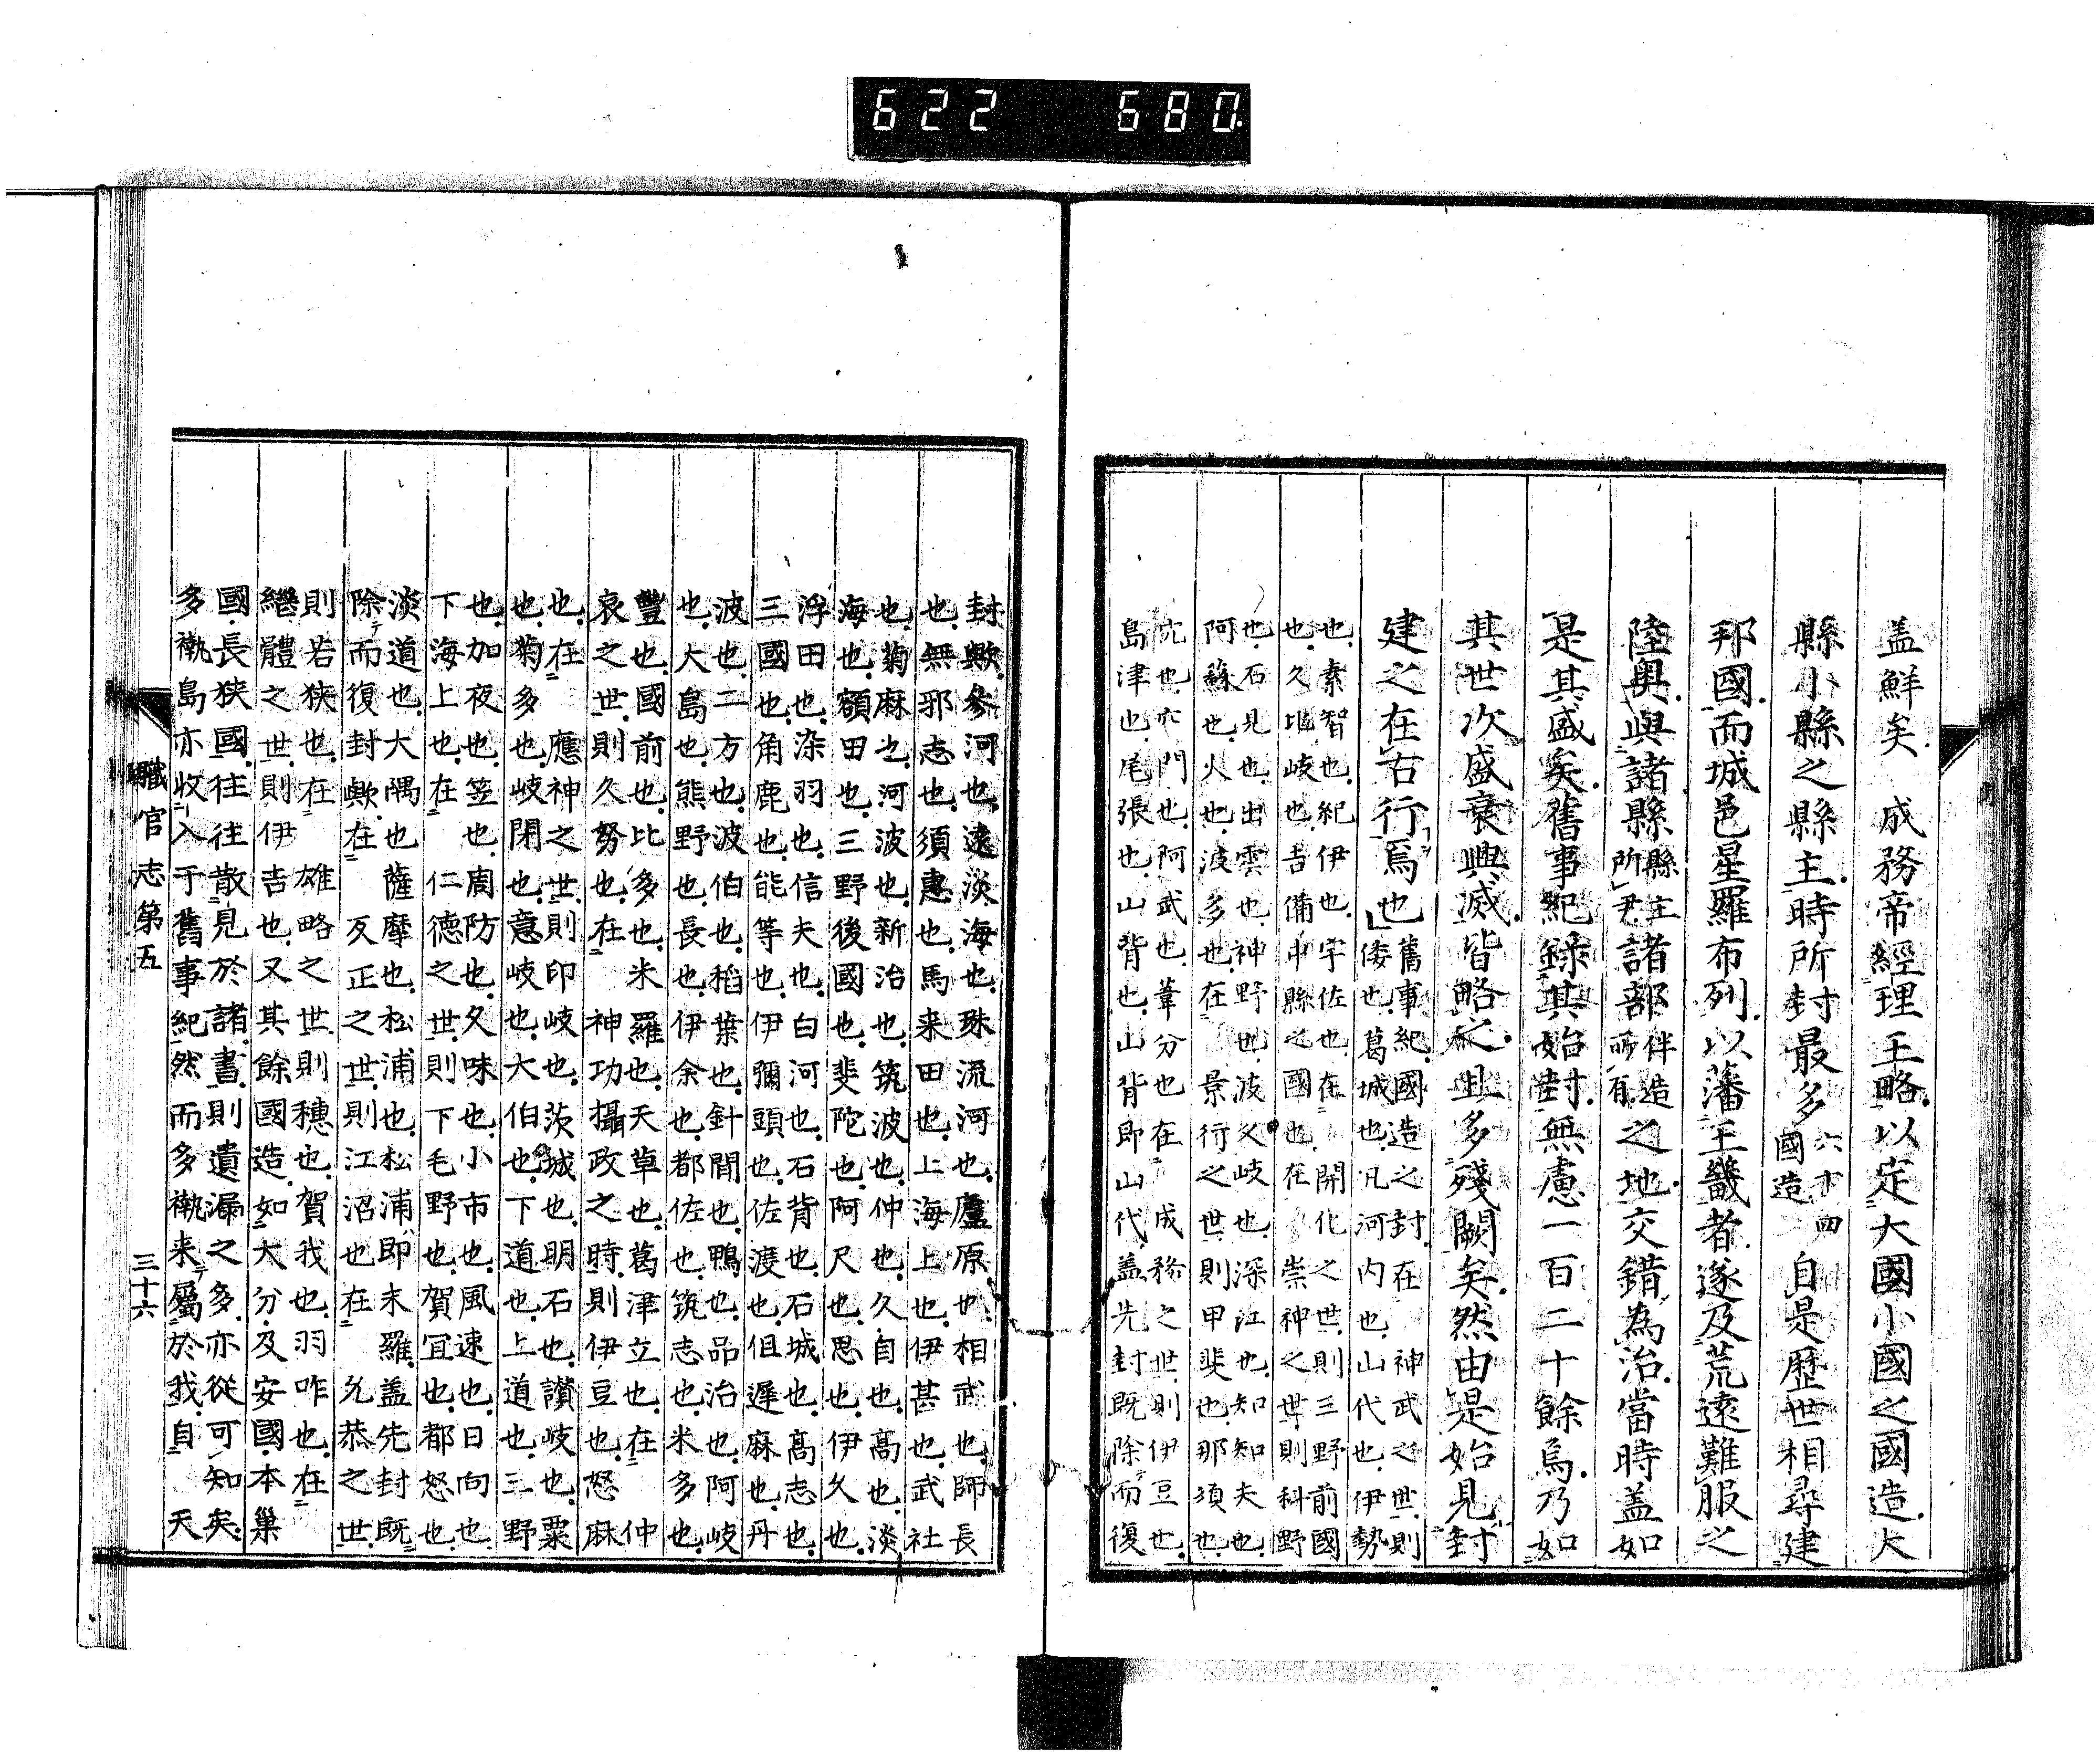 622 680
盖鮮矣 成務帝經理王略以定大國小國之國造大
縣小縣之縣主時所封最多
六十四
國造
自是歴世相尋建
邦國而城邑星羅布列以藩王畿者遂及荒遠難服之
陸奥與諸縣
縣主
所尹
諸部
伴造
所有
之地交錯為治當時盖如
是其盛矣舊事紀錄其始封無慮一百二十餘焉乃如
其世次盛衰興滅皆略之且多殘闕矣然由是始見封
建之在古行焉也
舊事紀國造之封在 神武之世則
倭也葛城也凡河内也山代也伊勢
也素智也紀伊也宇佐也在 開化之世則三野前國
也久比岐也吉備中縣之國也在 崇神之世則科野
也石見也出雲也神野也波久岐也深江也知知夫也
阿蘇也火也波多也在 景行之世則甲斐也那須也
亢也穴門也阿武也葦分也在 成務之世則伊豆也
島津也尾張也山背也山背即山代盖先封既除而復
封歟參河也遠淡海也珠流河也廬原也相武也師長
也無邪志也須惠也馬来田也上海上也伊甚也武社
也菊麻也河波也新治也筑波也仲也久自也高也淡
海也額田也三野後國也斐陀也阿尺也思也伊久也
浮田也染羽也信夫也白河也石背也石城也高志也
三國也角鹿也能等也伊彌頭也佐渡也但遲麻也丹
波也二方也波伯也稻葉也針間也鴨也品治也阿岐
也大島也熊野也長也伊余也都佐也筑志也米多也
豐也國前也比多也米羅也天草也葛津立也在 仲
哀之世則久努也在 神功攝政之時則伊豆也怒麻
也在 應神之世則印岐也茨城也明石也讃岐也粟
也菊多也岐閉也意岐也大伯也下道也上道也三野
也加夜也笠也周防也久味也小市也風速也日向也
下海上也在 仁德之世則下毛野也賀宜也都怒也
淡道也大隅也薩摩也松浦也松浦即末羅盖先封既
除而復封歟在 反正之世則江沼也在 允恭之世
則若狹也在 雄略之世則穗也賀我也羽咋也在
繼體之世則伊吉也又其餘國造如大分及安國本巢
國長狹國往往散見於諸書則遺漏之多亦從可知矣
多褹島亦收入于舊事紀然而多褹来屬於我自 天
職官志第五 三十六